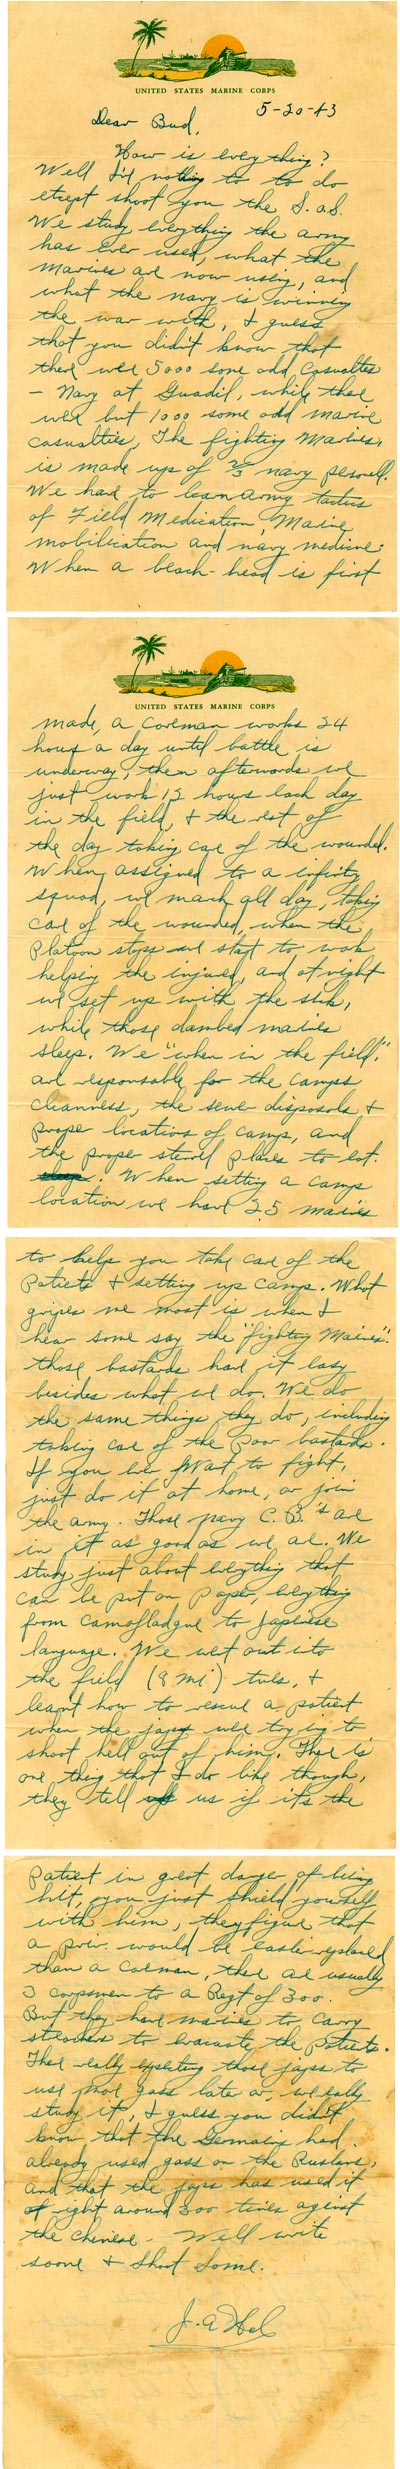 UNITED STATES MARINE CORPS
5-20-43
Dear Bud,
How is everything?
Well I've nothing to to do
except shoot you the S.O.S.
We study everything the army
has ever used, what the
marines are now using, and
what the navy is winning
the war with, I guess
that you didn't know that
there were 5000 some odd casualtes
- Navy at Guadil, while there
were but 1000 some odd marine
casualties, The fighting Marines,
is made up of 2/3 navy personell.
We have to learn army tactics
of Field Medication, Marine
mobilication and navy medicine.
When a beach-head is first
UNITED STATES MARINE CORPS
made, a coreman works 24
hours a day until battle is
underway, then afterwords we
just work 12 hours each day
in the field, & the rest of
the day taking care of the wounded.
When assigned to a infinty
squad, we march all day, taking
care of the wounded, when the
Platoon stops we start to work
helping the injured, and at night
we set up with the sick,
while those dambed marines
sleep. We "when in the field."
are responsable for the camps
cleanness, the sewer disposals &
proper locations of camp, and
the proper places to eat.
When setting a camps
location we have 25 marines
to help you take care of the
Patiets & setting up camp. What
gripes me most is when I
hear some say the "fighting Marines".
those bastards have it easy
besides what we do. We do
the same things they do, including
taking care of the Poor bastards.
If you ever Want to fight,
just do it at home, or join
the army. Those navy C.B.'s are
in it as good as we are. We
study just about everything that
can be put on paper, everything
from camofladgue to Japenese
language. We went out into
the field (8 mi) tues, &
learnt how to rescue a patient
when the japs were trying to
shoot hell out of him. There is
one thing that I do like though,
they tell us if it's the
Patient in great danger of being
hit, you just shield yourself
with him, they figure that
a priv. would be easier replaced
than a coreman, there are usually
3 corpsmen to a Regt of 300.
But they have marines to carry
strechers to evacuate the patients.
There really expecting those japs to
use more gass later on, we really
study it, I guess you didn't
know that the Germains had
already used gass on the Russians,
and that the japs has used it
right around 300 times against
the chenese - Well write
soone & shoot some.
J. A.